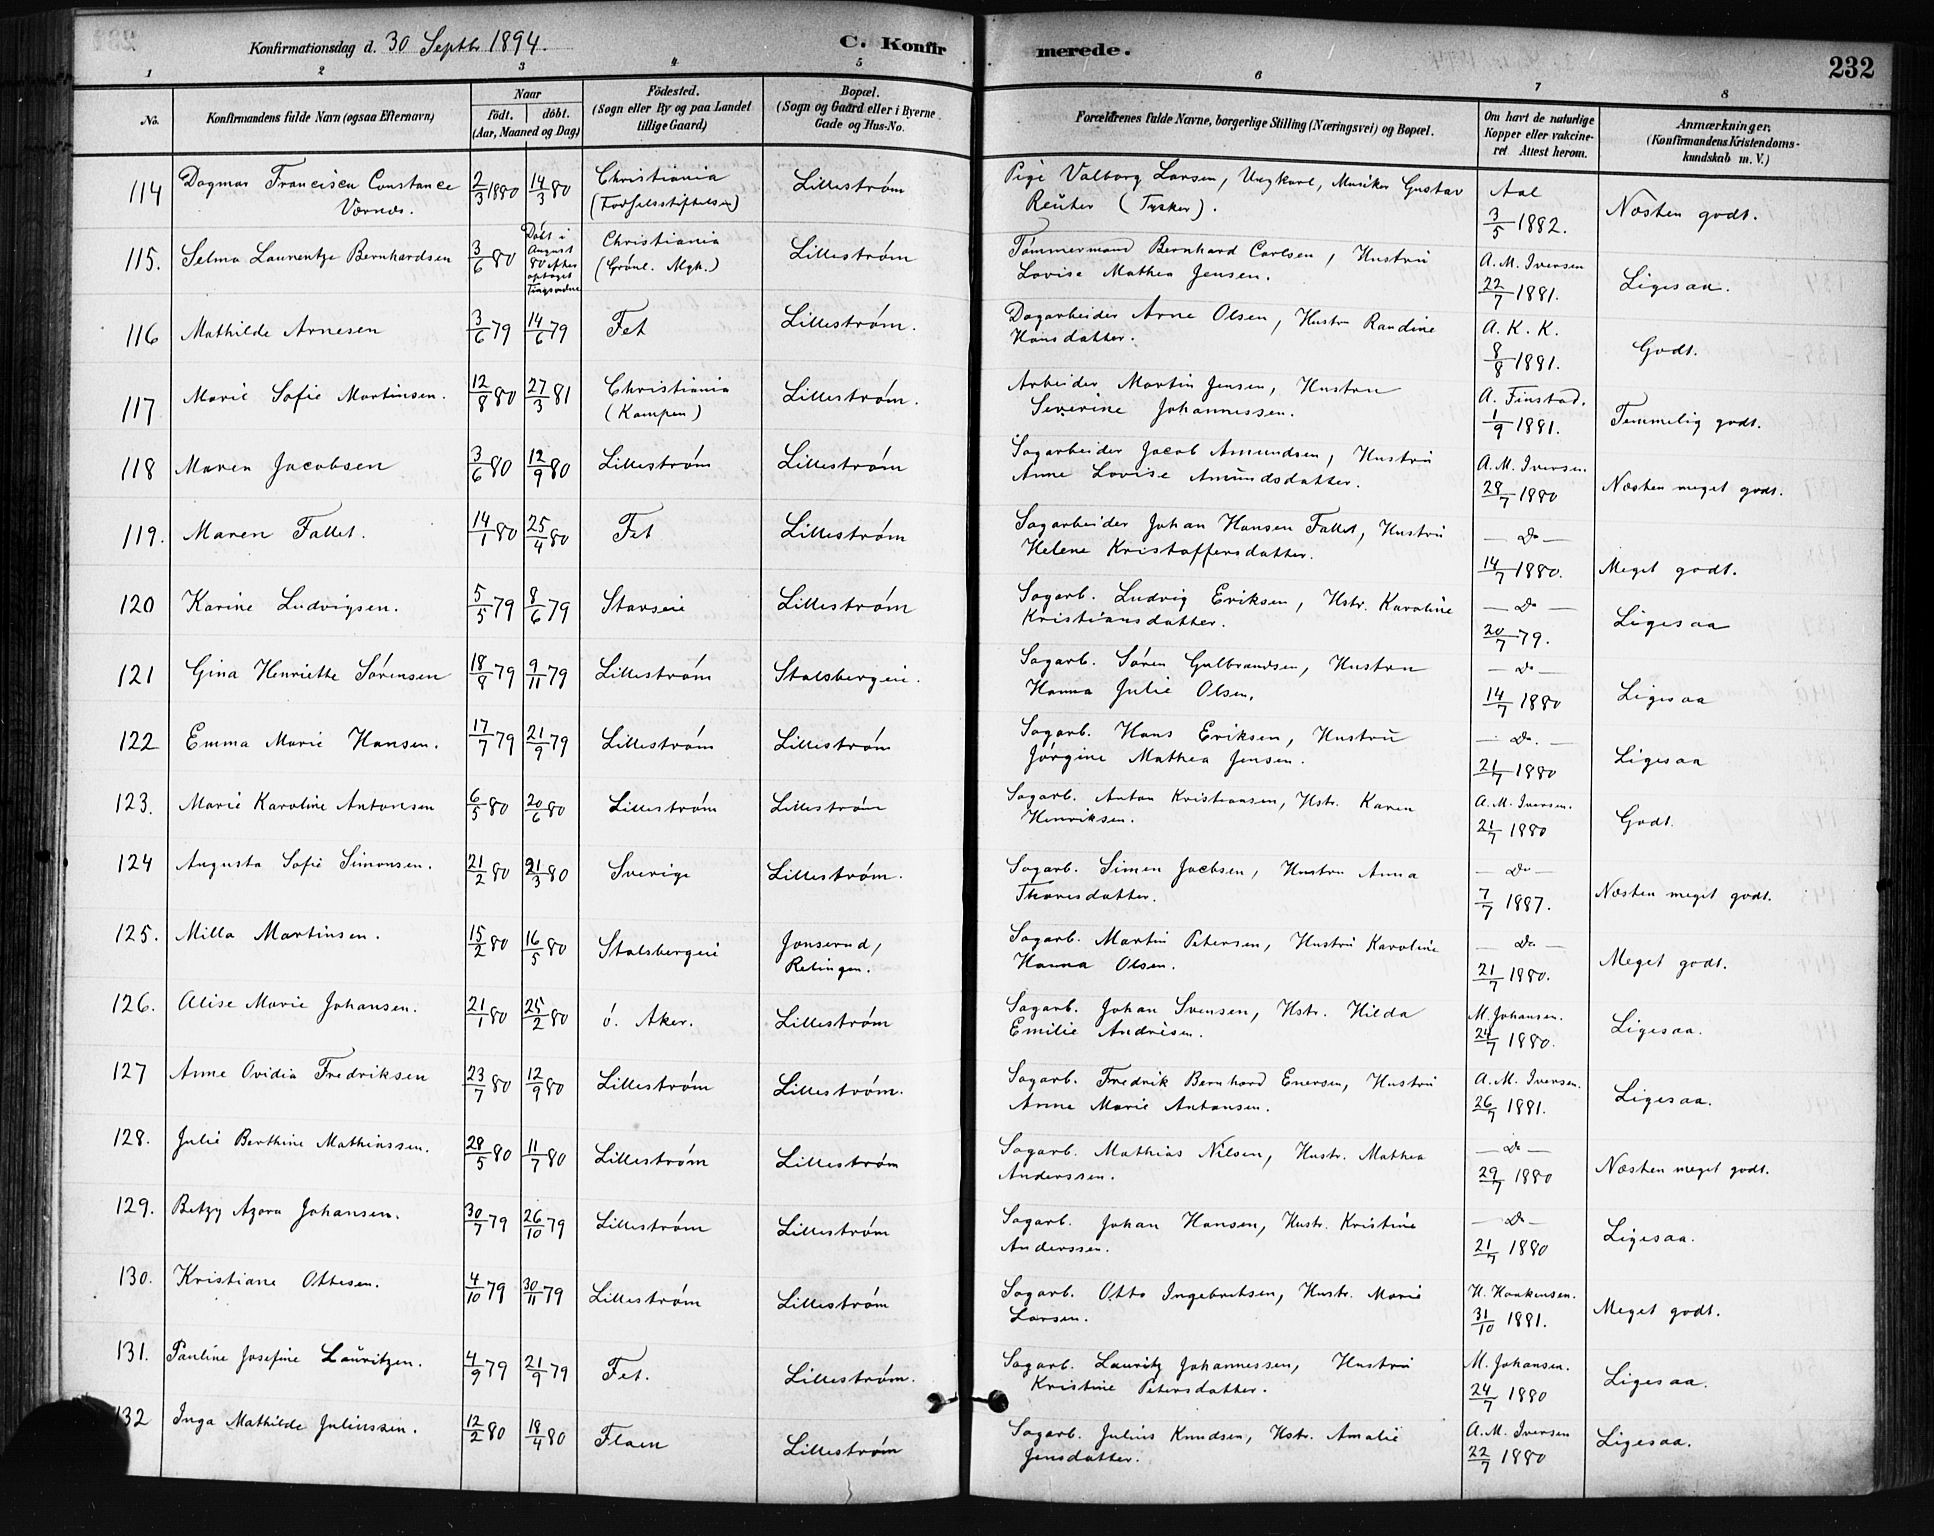 Konfirmationsdag d. 30 Septbr 1894.
C. Konfirmerede.
232
1 2 3 4 5 6 7 8
No. Konfirmandens fulde Navn (ogsaa Efternavn) Naar födt. döbt. (Aar, Maaned og Dag) Födested. (Sogn eller By og paa Landet tillige Gaard) Bopæl. (Sogn og Gaard eller i Byerne Gade og Hus-No. Forældrenes fulde Navne, borgerlige Stilling (Næringsvei) og Bopæl. Om havt de naturlige Kopper eller vakcineret. Attest herom. Anmærkninger. (Konfirmandens Kristendomskundskab m. V.)
114 Dagmar Francisca Constance Værnes. 2/3 1880 14/3 80 Christiania (Fødselsstiftelsen) Lillestrøm Pige Valborg Larsen, Ungkarl, Musiker Gustav Reuter (Tysker). Aal 3/5 1882. Næsten godt.
115. Selma Laurentze Bernhardsen 3/6 80 Døbt i August 80 efter optaget Tingsvidne Christiania (Grønl. Mgh.) Lillestrøm Tømmermand Bernhard Carlsen, Hustru Lovise Mathea Jensen. A. M. Iversen 22/7 1881. Ligesaa.
116 Mathilde Arnesen 3/6 79 14/6 79 Fet Lillestrøm. Dagarbeider Arne Olsen, Hustru Randine Hansdatter. A. K. K. 8/8 1881. Godt.
117 Marie Sofie Martinsen. 12/8 80 27/3 81 Christiania (Kampen) Lillestrøm. Arbeider Martin Jensen, Hustru Severine Johannessen. A. Finstad. 1/9 1881. Temmelig godt.
118 Maren Jacobsen 3/6 80 12/9 80 Lillestrøm Lillestrøm Sagarbeider Jacob Amundsen, Hustru Anne Lovise Amundsdatter. A. M. Iversen 28/7 1880 Næsten meget godt.
119. Maren Fallet. 14/1 80 25/4 80 Fet Lillestrøm Sagarbeider Johan Hansen Fallet, Hustru Helene Kristoffersdatter. — Do — 14/7 1880. Meget godt.
120 Karine Ludvigsen. 5/5 79 8/6 79 Starseie Lillestrøm Sagarb. Ludvig Eriksen, Hstr. Karoline Kristiansdatter. — Do — 20/7 79. Ligesaa
121 Gina Henriette Sørensen 18/8 79 9/11 79 Lillestrøm Stalsbergeie. Sagarb. Søren Gulbrandsen, Hustru Hanna Julie Olsen. — Do — 14/7 1880 Ligesaa
122 Emma Marie Hansen. 17/7 79 21/9 79 Lillestrøm Lillestrøm Sagarb. Hans Eriksen, Hustru Jørgine Mathea Jensen. — Do. — 21/7 1880 Ligesaa
123. Marie Karoline Antonsen 6/5 80 20/6 80 Lillestrøm Lillestrøm Sagarb. Anton Kristiansen, Hstr. Karen Henriksen. A. M. Iversen. 21/7 1880 Godt.
124 Augusta Sofie Simonsen. 21/2 80 21/3 80 Sverige Lillestrøm. Sagarb. Simen Jacobsen, Hustru Anna Thoresdatter. — Do — 7/7 1887. Næsten meget godt.
125. Milla Martinsen. 15/2 80 16/5 80 Stalsbergeie Jonserud, Relingen. Sagarb. Martin Petersen, Hustru Karoline Hanna Olsen. — Do — 21/7 1880. Meget godt.
126. Alise Marie Johansen. 21/1 80 25/2 80 Ö. Aker. Lillestrøm Sagarb. Johan Svensen, Hstr. Hilda Emilie Andrésen. M. Johansen. 24/7 1880. Ligesaa.
127 Anne Ovidia Fredriksen 23/7 80 12/9 80 Lillestrøm Lillestrøm. Sagarb. Fredrik Bernhard Enersen, Hustru Anne Marie Antonsen. A. M. Iversen. 26/7 1881. Ligesaa.
128. Julie Berthine Mathiassen. 28/5 80 11/7 80 Lillestrøm Lillestrøm Sagarb. Mathias Nilsen, Hustr. Mathea Anderssen. — Do — 29/7 1880 Næsten meget godt.
129. Betzy Agora Johansen. 30/7 79 26/10 79 Lillestrøm Lillestrøm Sagarb. Johan Hansen, Hustr. Kristine Anderssen. — Do — 21/7 1880 Ligesaa.
130. Kristiane Ottesen. 4/10 79 30/11 79 Lillestrøm Lillestrøm Sagarb. Otto Ingebretsen, Hustr. Marie Larsen. H. Haakensen. 31/10 1881. Meget godt.
131. Pauline Josefine Lauritzen. 4/9 79 21/9 79 Fet. Lillestrøm. Sagarb. Lauritz Johannessen, Hustru Kristine Petersdatter. M. Johansen. 24/7 1880 Ligesaa.
132 Inga Mathilde Juliussen. 12/2 80 18/4 80 Flaen Lillestrøm Sagarb. Julius Knudsen, Hstr. Amalie Jensdatter. A. M. Iversen 22/7 1880 Ligesaa.